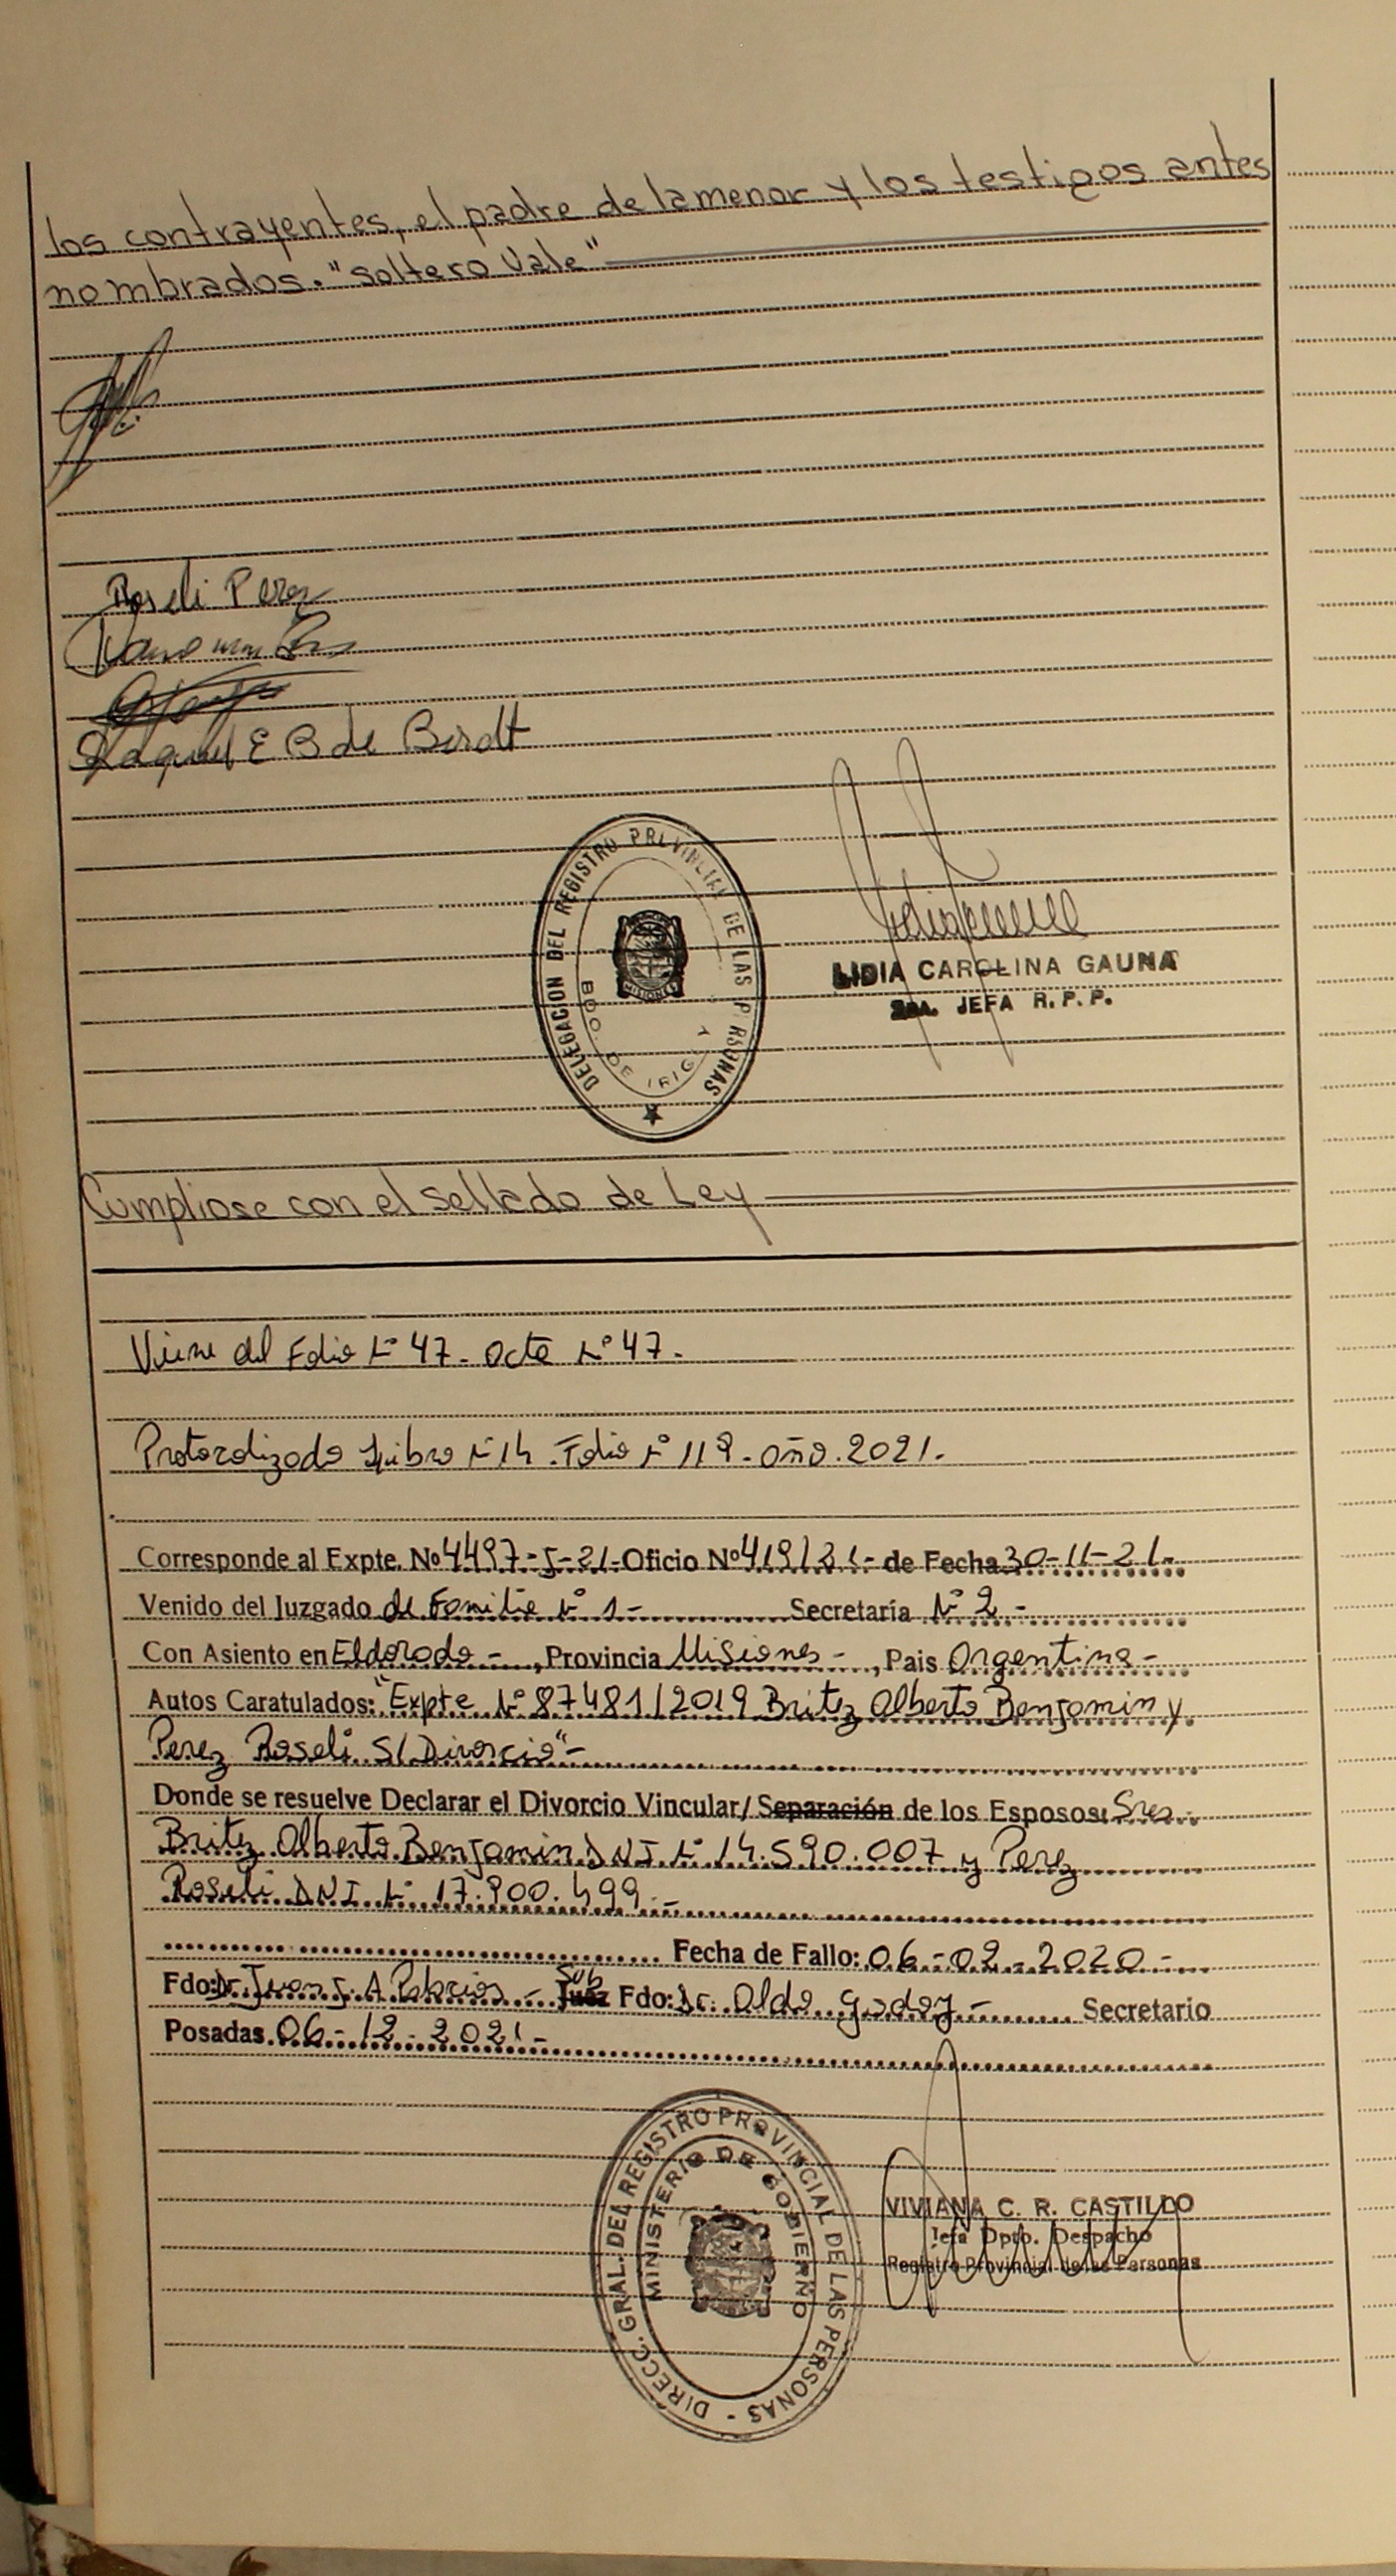 los contrayentes, el padre de la menor y los testigos antes
nombrados. "Soltero Vale"
Roseli Perez
Raquel E B de Berdt
DELEGACION DEL REGISTRO PROVINCIAL DE LAS PERSONAS
BDO. DE IRIGOY
MISIONES
LIDIA CAROLINA GAUNA
JEFA R. P. P.
Cumpliose con el sellado de Ley
Viene del Folio N° 47. Acta N° 47.
Protocolizado Libro N° 14. Folio N° 119. año. 2021.
Corresponde al Expte. Nº 4497-J-21. Oficio Nº 419/21- de Fecha 30-11-21.
Venido del Juzgado de Familia N° 1- Secretaría N° 2-
Con Asiento en Eldorado-, Provincia Misiones-, Pais Argentina-
Autos Caratulados: "Expte N° 87481/2019 Britez Alberto Benjamin y
Perez Roseli S/Divorcio"-
Donde se resuelve Declarar el Divorcio Vincular/ Separación de los Esposos: Sres.
Britez Alberto Benjamin DNI N° 14.590.007 y Perez
Roseli DNI N° 17.900.499.-
Fecha de Fallo: 06-02-2020-
Fdo: Dr. Juan J. A - Sub Juez Fdo: Dr. Aldo Godoy- Secretario
Posadas. 06-12-2021-
DIRECC. GRAL. DEL REGISTRO PROVINCIAL DE LAS PERSONAS -
MINISTERIO DE GOBIERNO
VIVIANA C. R. CASTILLO
Jefa Dpto. Despacho
Registro Provincial de las Personas